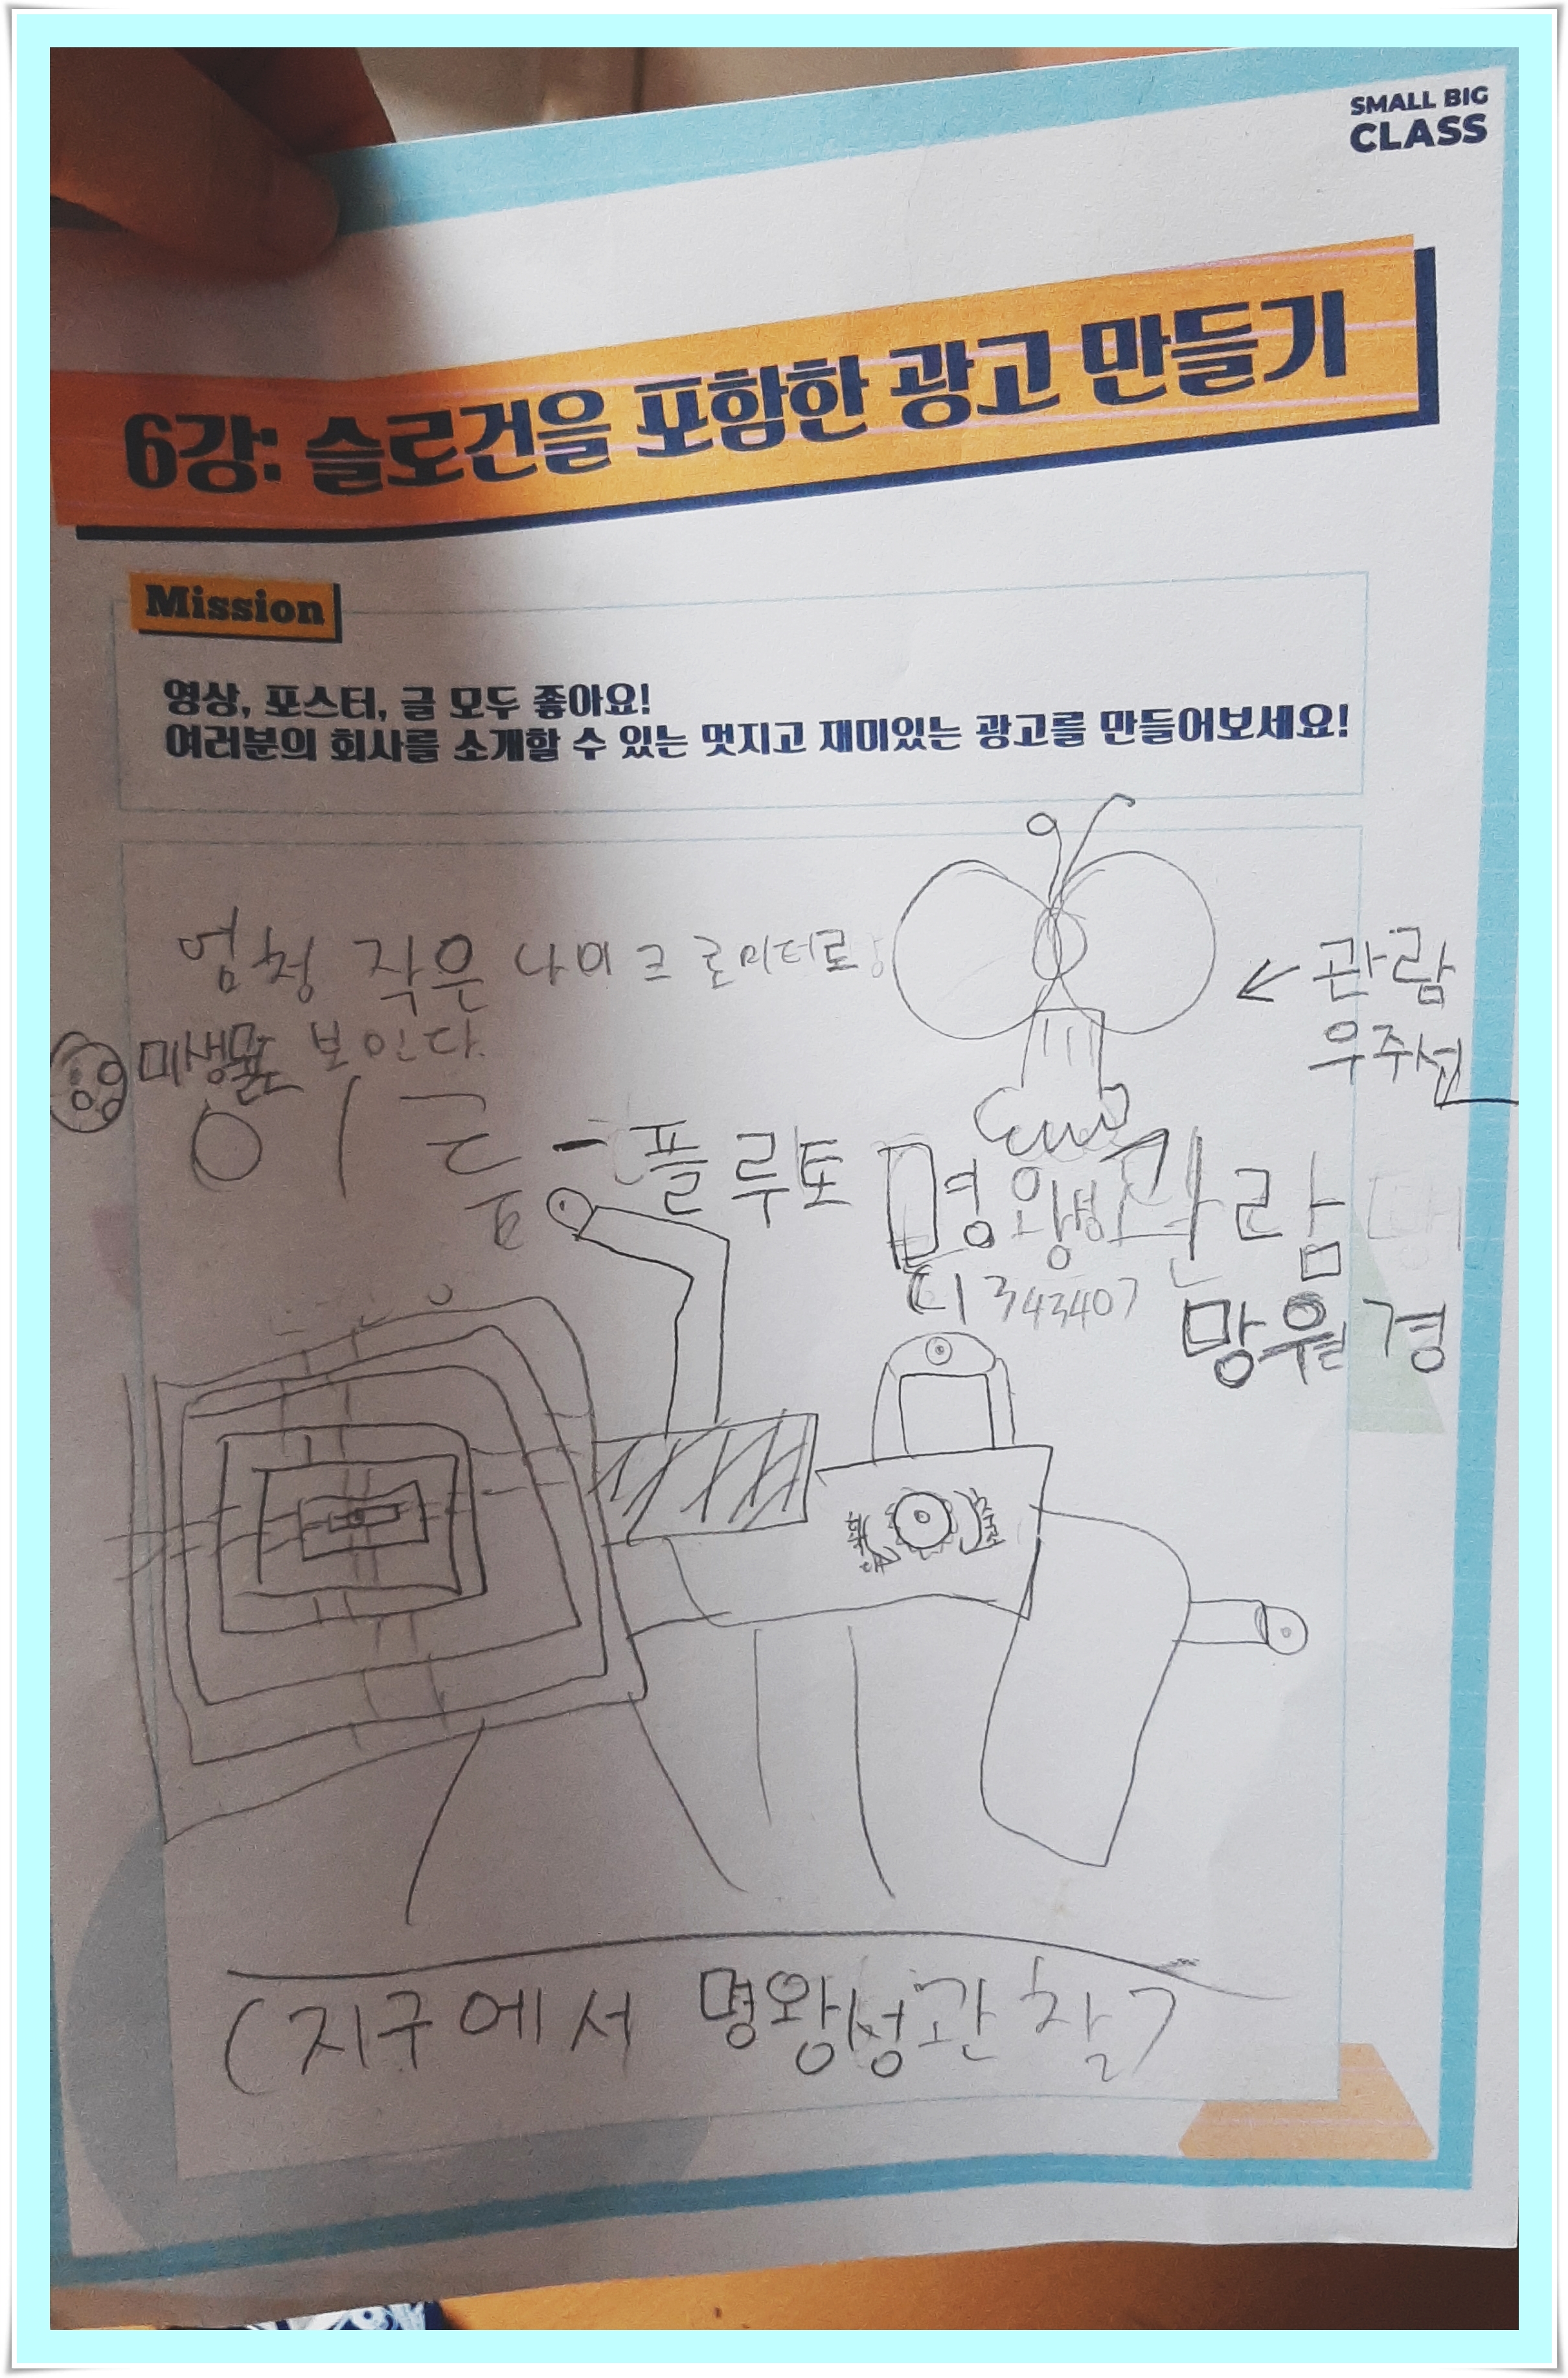 SMALL BIG
CLASS
6강: 슬로건을 포함한 광고 만들기
Mission
영상, 포스터, 글 모두 좋아요!
여러분의 회사를 소개할 수 있는 멋지고 재미있는 광고를 만들어보세요!
엄청 작은 나이크로미터로
미생물도 보인다.
← 관람
우주선
이름 - 플루토 명왕성 관람
343407
망원경
(지구에서 명왕성관찰)